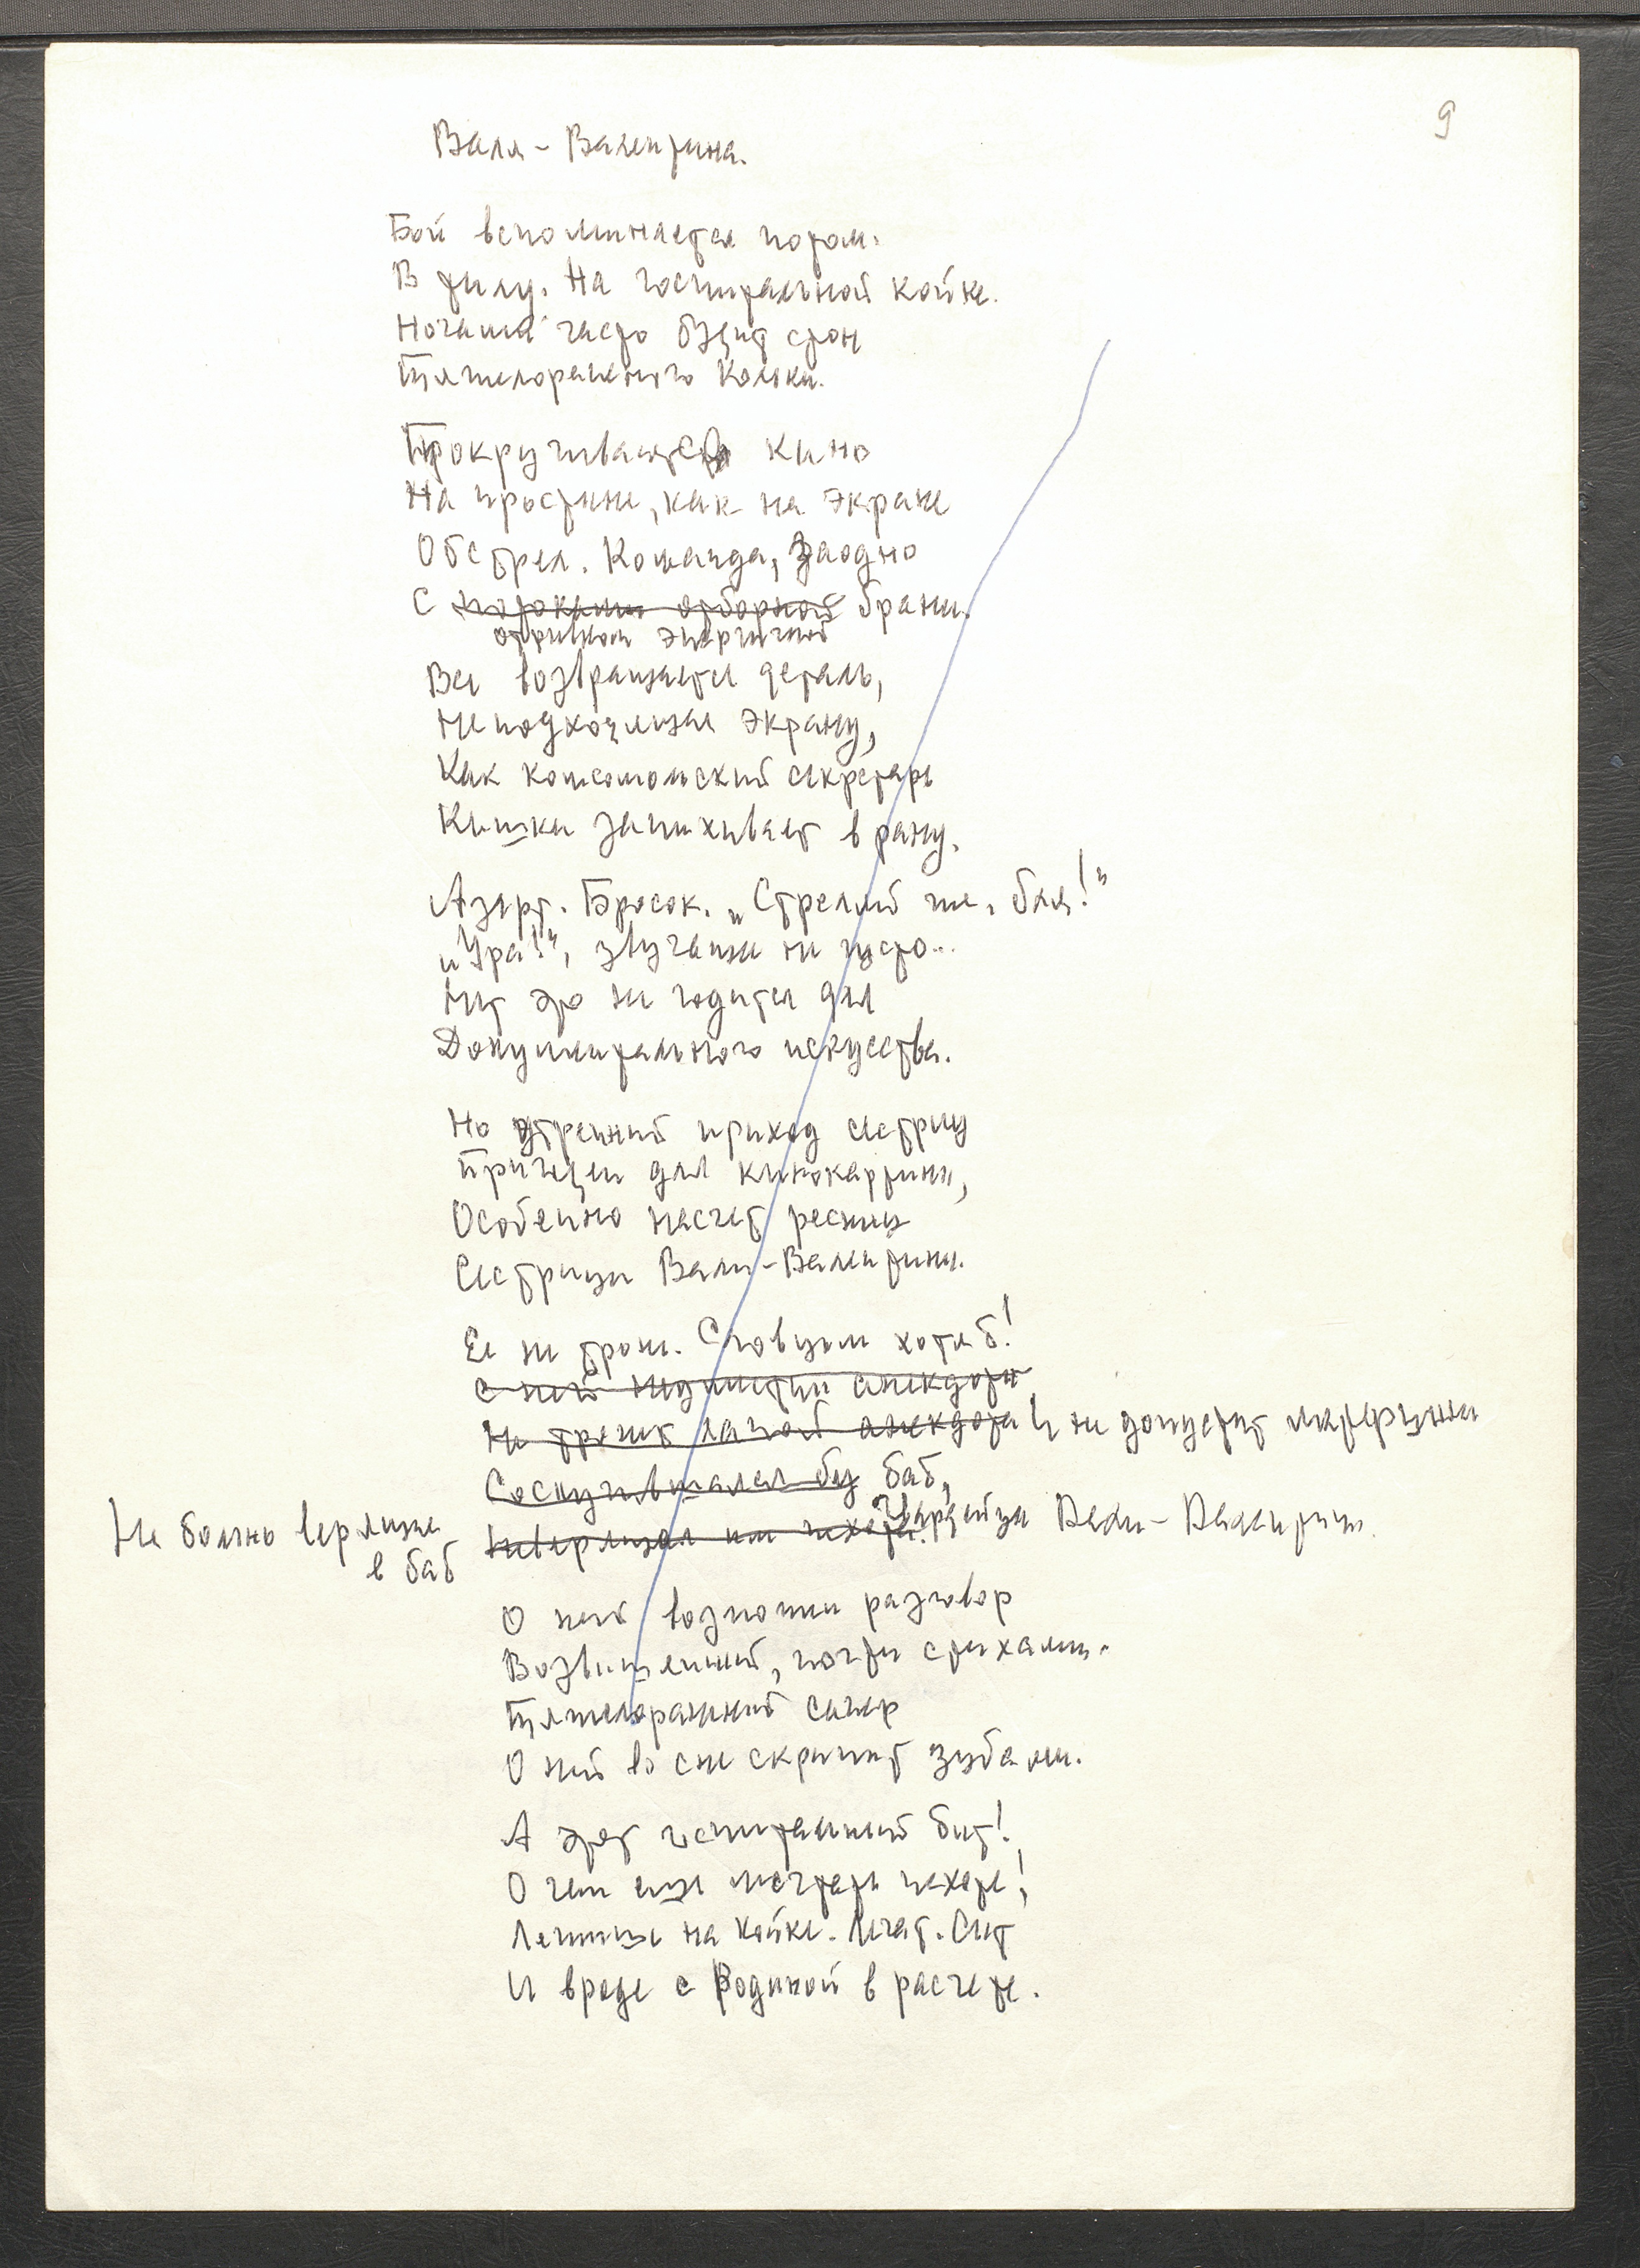 9
Валя-Валентина.
Бой вспоминается потом.
В тылу. На госпитальной койке.
Ночами часто будит стон
Тяжелораненого Кольки.
Прокручивается кино
На простыне, как на экране
Обстрел. Команда, заодно
С потоками отборной брани.
отрывком энергичной
Все возвращается деталь,
Неподходящая экрану,
Как комсомольский секретарь
Кишки запихивает в рану.
Азарт. Бросок. „Стреляй же, бля!"
„Ура!", звучащее не густо...
Нет это не годится для
Документального искусства.
Но утренний приход сестриц
Пригоден для кинокартины,
Особенно насчет ресниц
Сестрицы Вали-Валентины.
Ее не тронь. Словцом хотя б!
С ней неуместны анекдоты
Не тронет лапой анекдота И не допустят матерщины
Соскучившаяся без баб,
Не больно верящие
в баб
Гвардейцы Вали-Валентины.
О ней возможен разговор
Возвышенный, почти стихами.
Тяжелораненный сапер
О ней во сне скрипит зубами.
А этот госпитальный быт!
О чем еще мечтать пехоте!
Лежишь на койке. Лечат. Сыт
И вроде с Родиной в расчете.